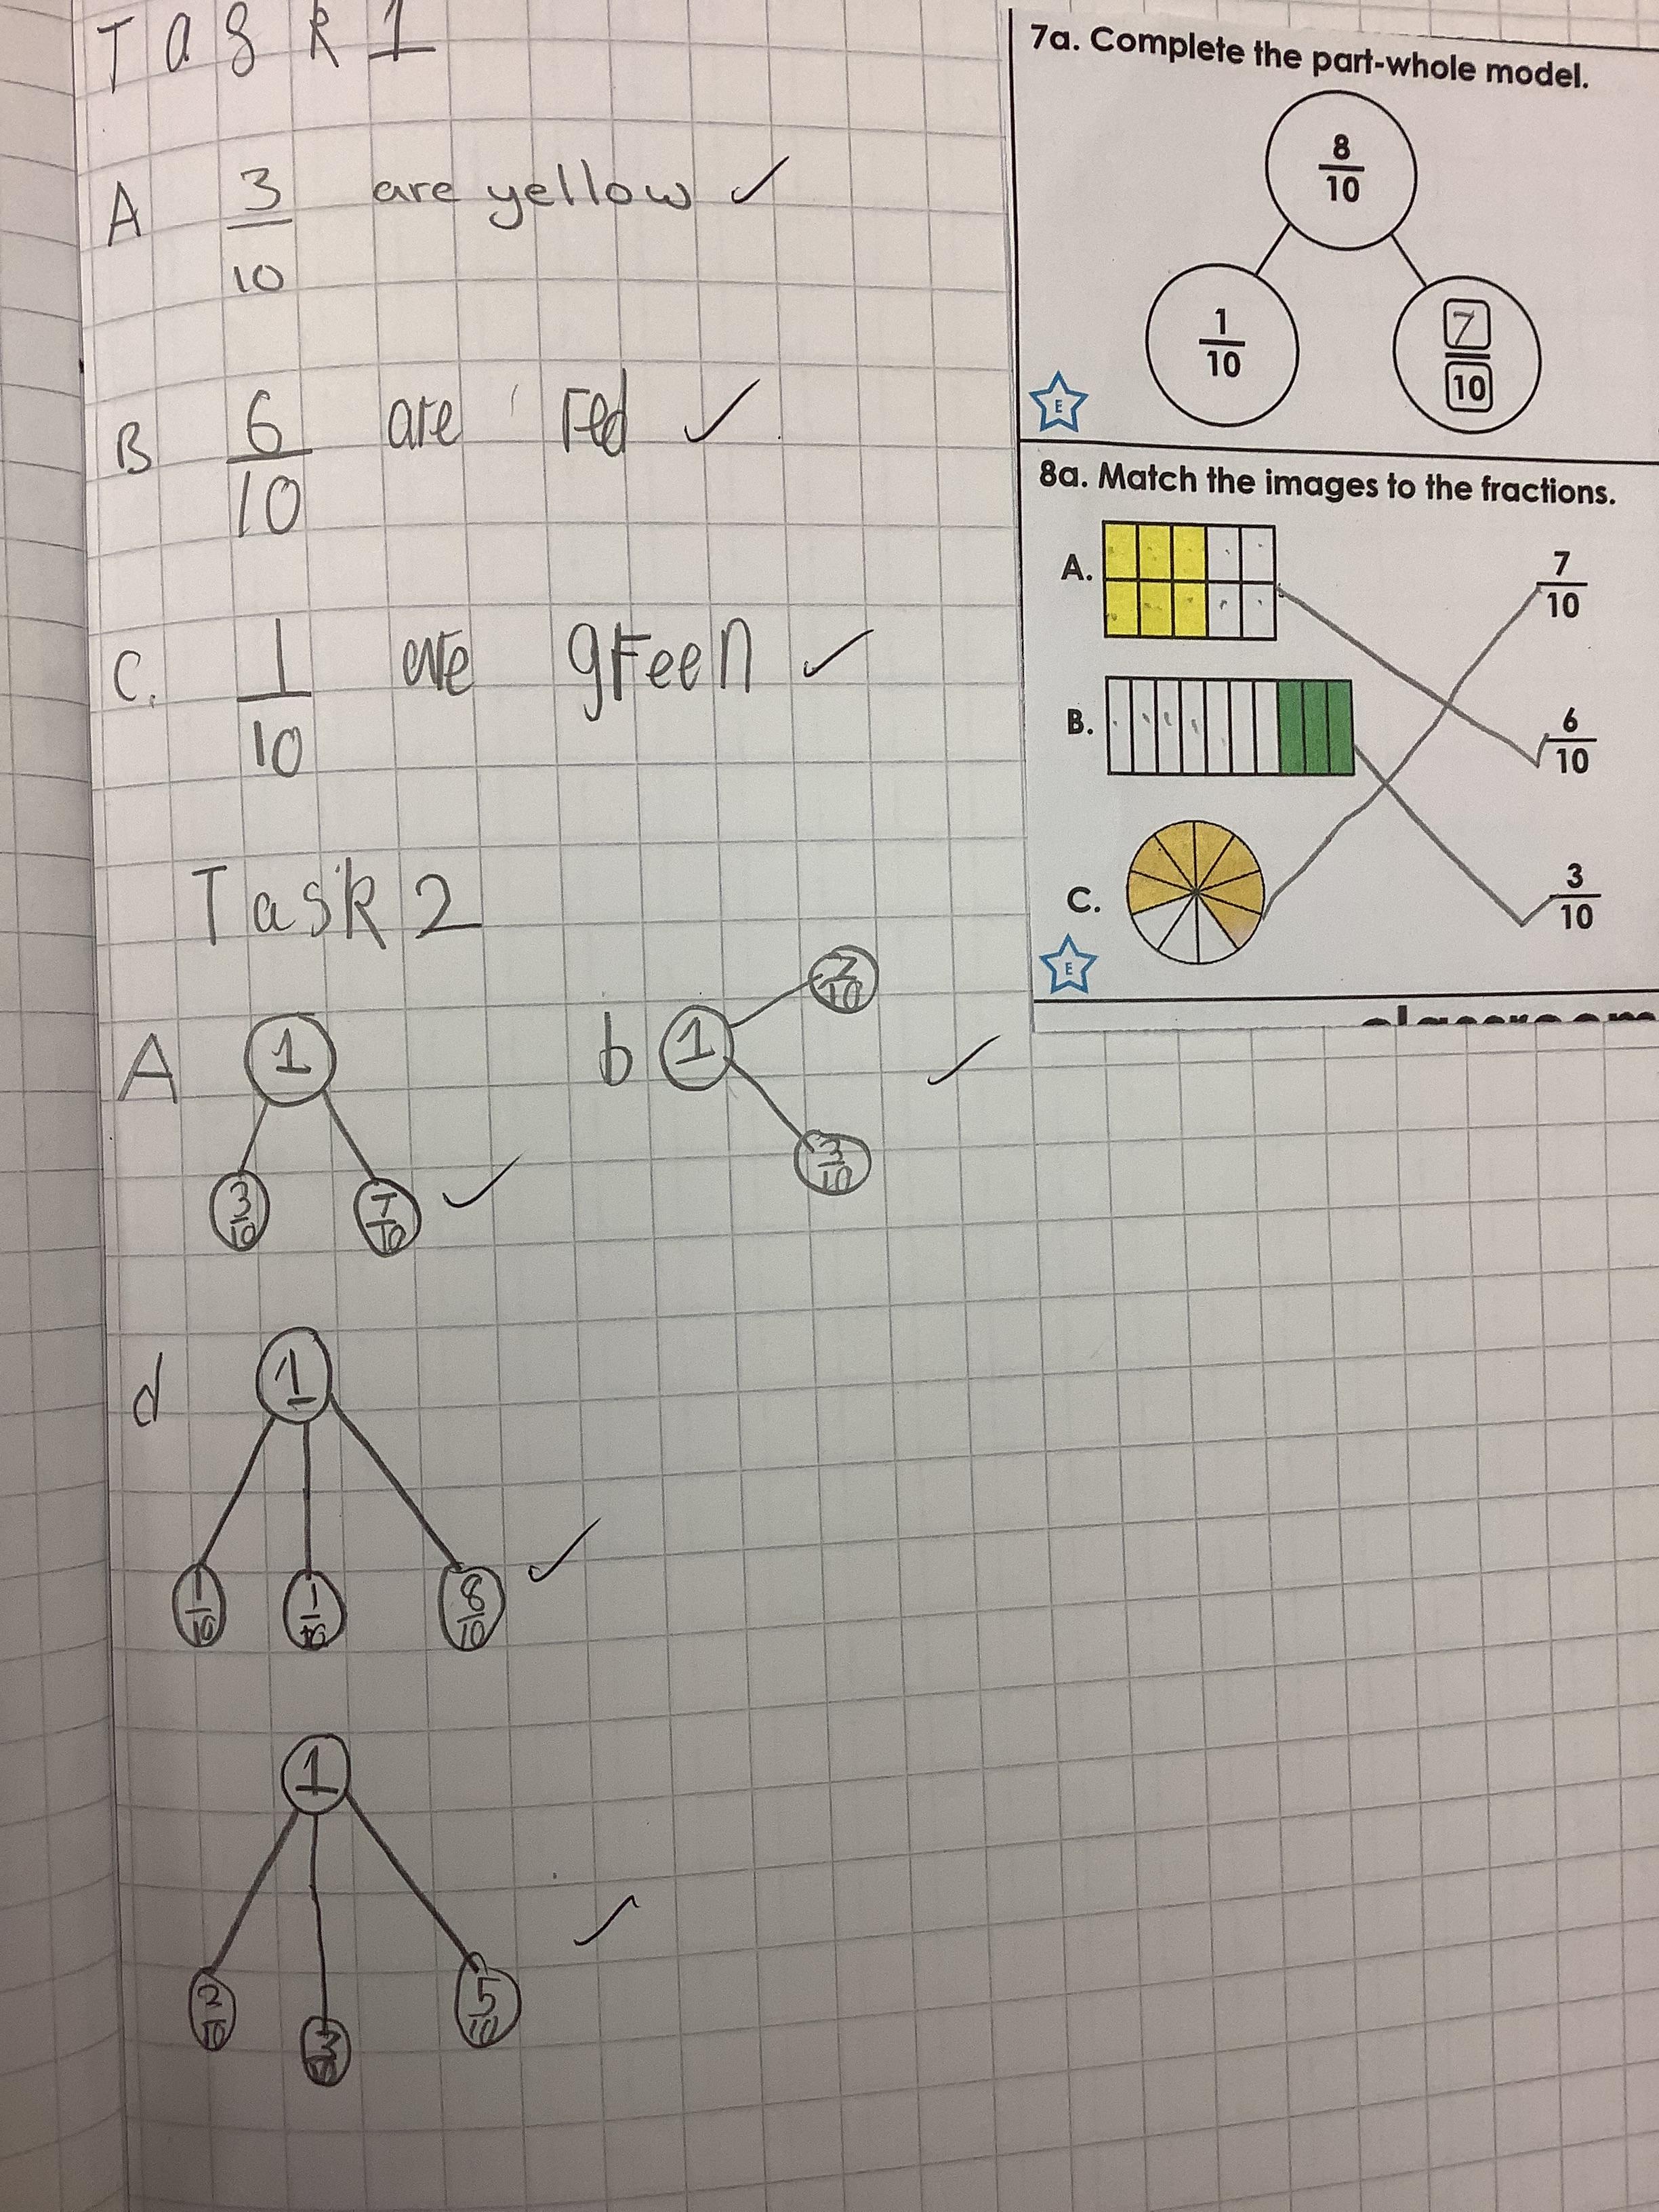 Task 1
A 3/10 are yellow ✓
B 6/10 are red ✓
C. 1/10 are green ✓
Task 2
A 1
3/10 7/10 ✓
b 1
7/10
3/10 ✓
d 1
1/10 1/10 8/10 ✓
1
2/10 3/10 5/10 ✓
7a. Complete the part-whole model.
8/10
1/10 7/10
E
8a. Match the images to the fractions.
A. 7/10
B. 6/10
C. 3/10
E
classroom